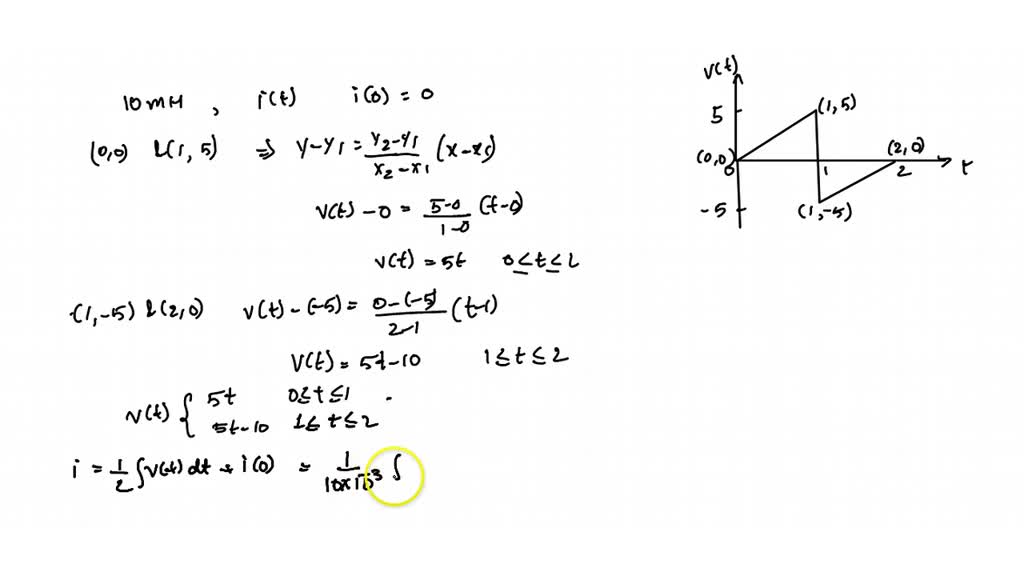 10mH , i(t) i(0) = 0
(0,0) &(1,5) ⇒ y-y1 = (y2-y1)/(x2-x1) (x-x1)
v(t) - 0 = (5-0)/(1-0) (t-0)
v(t) = 5t 0≤t≤1
(1,-5) &(2,0) v(t)-(-5) = (0-(-5))/(2-1) (t-1)
v(t) = 5t-10 1≤t≤2
v(t) { 5t 0≤t≤1
5t-10 1≤t≤2
i = 1/2 ∫v(t) dt + i(0) = 1/(10×10^-3) ∫
v(t)
5
(1,5)
(0,0)
0
1
(2,0)
2
t
-5
(1,-5)